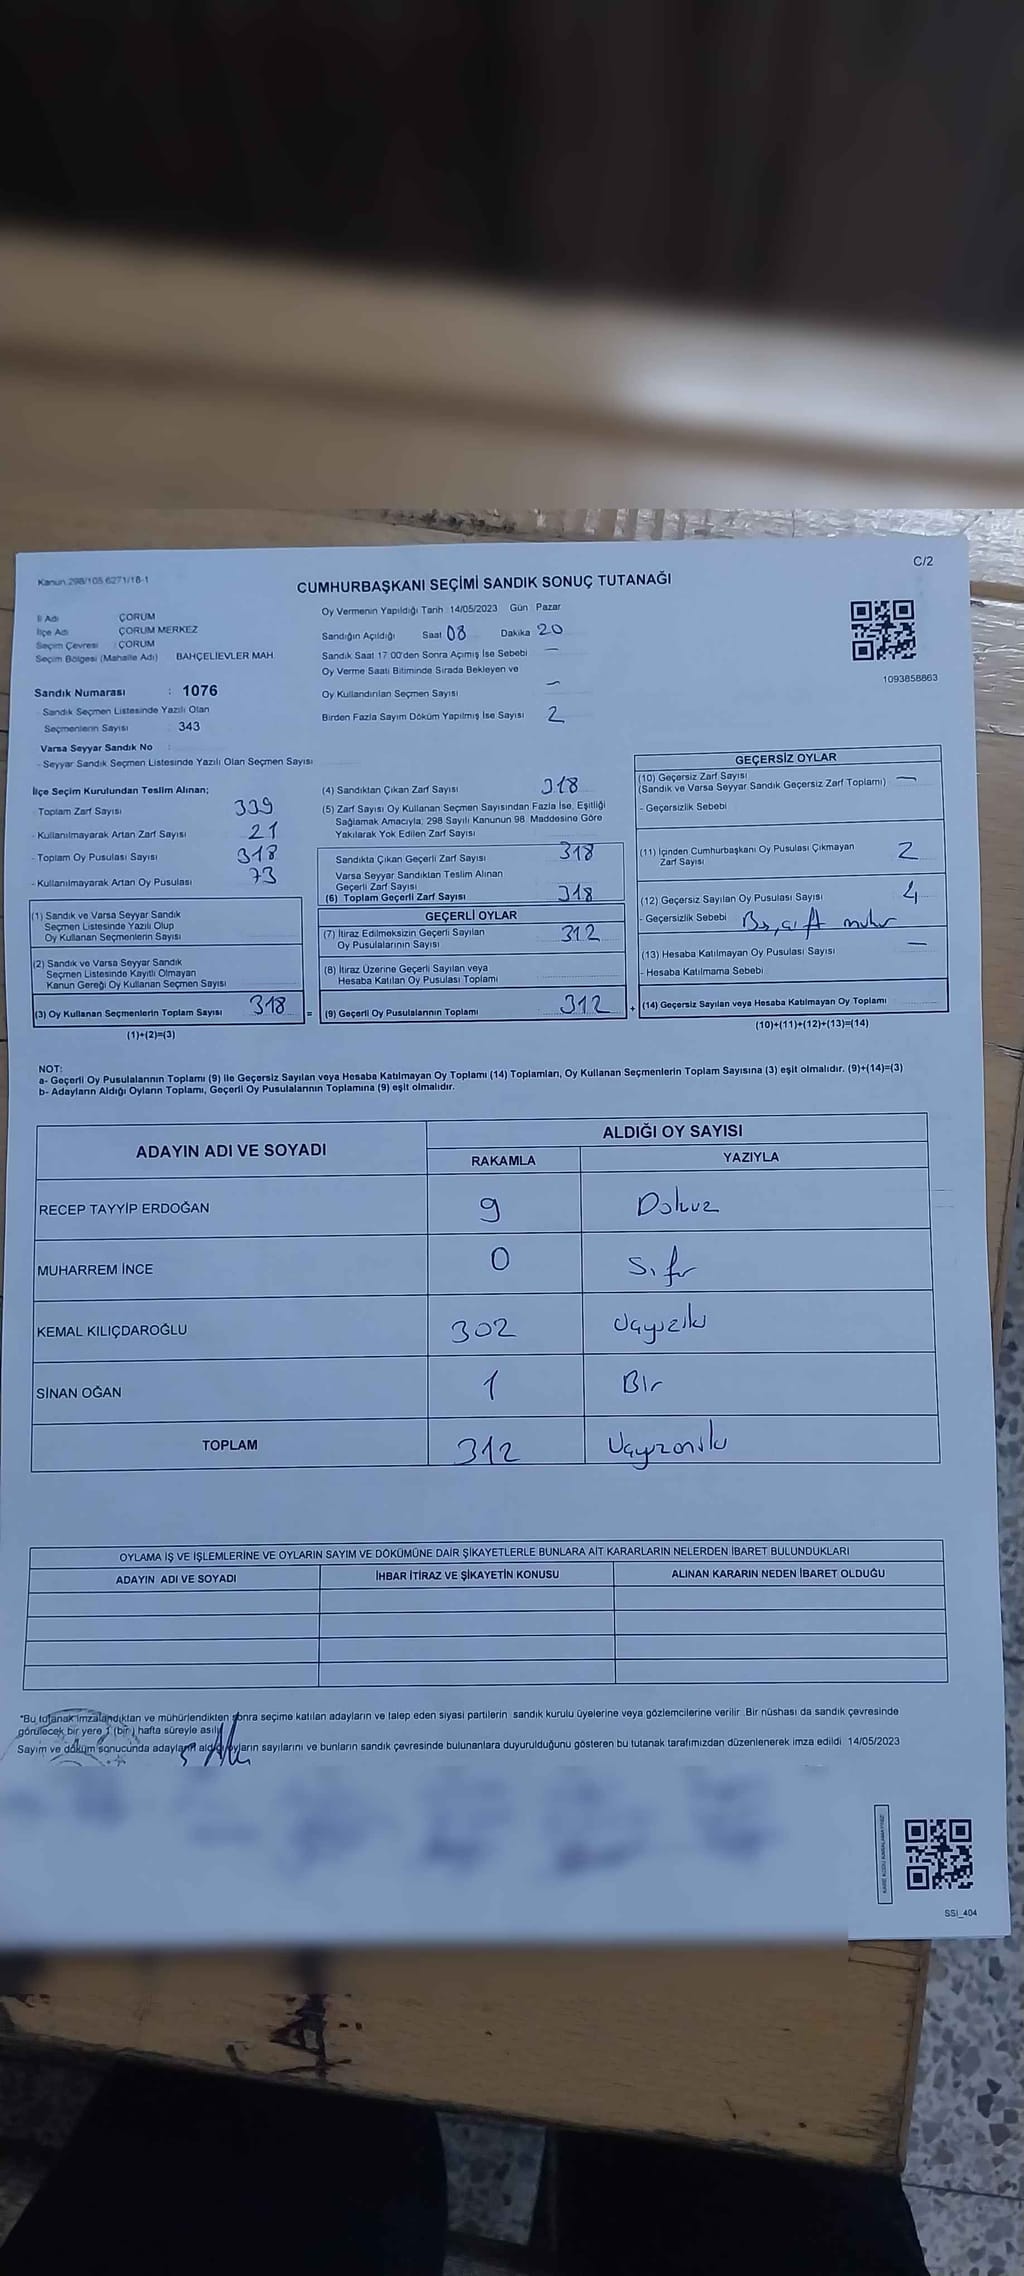 Kanun.298/105.6271/18-1
C/2
CUMHURBAŞKANI SEÇİMİ SANDIK SONUÇ TUTANAĞI
İl Adı ÇORUM
İlçe Adı ÇORUM MERKEZ
Seçim Çevresi : ÇORUM
Seçim Bölgesi (Mahalle Adı) BAHÇELİEVLER MAH.
Sandık Numarası : 1076
Sandık Seçmen Listesinde Yazılı Olan
Seçmenlerin Sayısı : 343
Varsa Seyyar Sandık No :
- Seyyar Sandık Seçmen Listesinde Yazılı Olan Seçmen Sayısı
Oy Vermenin Yapıldığı Tarih 14/05/2023 Gün Pazar
Sandığın Açıldığı Saat 08 Dakika 20
Sandık Saat 17:00'den Sonra Açımış İse Sebebi —
Oy Verme Saati Bitiminde Sırada Bekleyen ve
Oy Kullandırılan Seçmen Sayısı —
Birden Fazla Sayım Döküm Yapılmış İse Sayısı 2
1093858863
İlçe Seçim Kurulundan Teslim Alınan;
- Toplam Zarf Sayısı 339
- Kullanılmayarak Artan Zarf Sayısı 21
- Toplam Oy Pusulası Sayısı 318
- Kullanılmayarak Artan Oy Pusulası 73
(1) Sandık ve Varsa Seyyar Sandık
Seçmen Listesinde Yazılı Olup
Oy Kullanan Seçmenlerin Sayısı
(2) Sandık ve Varsa Seyyar Sandık
Seçmen Listesinde Kayıtlı Olmayan
Kanun Gereği Oy Kullanan Seçmen Sayısı
(3) Oy Kullanan Seçmenlerin Toplam Sayısı 318 =
(1)+(2)=(3)
(4) Sandıktan Çıkan Zarf Sayısı 318
(5) Zarf Sayısı Oy Kullanan Seçmen Sayısından Fazla İse, Eşitliği
Sağlamak Amacıyla, 298 Sayılı Kanunun 98. Maddesine Göre
Yakılarak Yok Edilen Zarf Sayısı
Sandıkta Çıkan Geçerli Zarf Sayısı 318
Varsa Seyyar Sandıktan Teslim Alınan
Geçerli Zarf Sayısı
(6) Toplam Geçerli Zarf Sayısı 318
GEÇERLİ OYLAR
(7) İtiraz Edilmeksizin Geçerli Sayılan
Oy Pusulalarının Sayısı 312
(8) İtiraz Üzerine Geçerli Sayılan veya
Hesaba Katılan Oy Pusulası Toplamı
(9) Geçerli Oy Pusulalarının Toplamı 312 +
GEÇERSİZ OYLAR
(10) Geçersiz Zarf Sayısı
(Sandık ve Varsa Seyyar Sandık Geçersiz Zarf Toplamı) —
- Geçersizlik Sebebi
(11) İçinden Cumhurbaşkanı Oy Pusulası Çıkmayan
Zarf Sayısı 2
(12) Geçersiz Sayılan Oy Pusulası Sayısı 4
- Geçersizlik Sebebi Boş, çift mühür
(13) Hesaba Katılmayan Oy Pusulası Sayısı —
- Hesaba Katılmama Sebebi
(14) Geçersiz Sayılan veya Hesaba Katılmayan Oy Toplamı
(10)+(11)+(12)+(13)=(14)
NOT:
a- Geçerli Oy Pusulalarının Toplamı (9) İle Geçersiz Sayılan veya Hesaba Katılmayan Oy Toplamı (14) Toplamları, Oy Kullanan Seçmenlerin Toplam Sayısına (3) eşit olmalıdır. (9)+(14)=(3)
b- Adayların Aldığı Oyların Toplamı, Geçerli Oy Pusulalarının Toplamına (9) eşit olmalıdır.
ADAYIN ADI VE SOYADI ALDIĞI OY SAYISI
RAKAMLA YAZIYLA
RECEP TAYYİP ERDOĞAN 9 Dokuz
MUHARREM İNCE 0 Sıfır
KEMAL KILIÇDAROĞLU 302 Üçyüziki
SİNAN OĞAN 1 Bir
TOPLAM 312 Üçyüzoniki
OYLAMA İŞ VE İŞLEMLERİNE VE OYLARIN SAYIM VE DÖKÜMÜNE DAİR ŞİKAYETLERLE BUNLARA AİT KARARLARIN NELERDEN İBARET BULUNDUKLARI
ADAYIN ADI VE SOYADI İHBAR İTİRAZ VE ŞİKAYETİN KONUSU ALINAN KARARIN NEDEN İBARET OLDUĞU
*Bu tutanak imzalandıktan ve mühürlendikten sonra seçime katılan adayların ve talep eden siyasi partilerin sandık kurulu üyelerine veya gözlemcilerine verilir. Bir nüshası da sandık çevresinde
görülecek bir yere 1 (bir) hafta süreyle asılır.
Sayım ve döküm sonucunda adayların aldığı oyların sayılarını ve bunların sandık çevresinde bulunanlara duyurulduğunu gösteren bu tutanak tarafımızdan düzenlenerek imza edildi. 14/05/2023
SSI_404